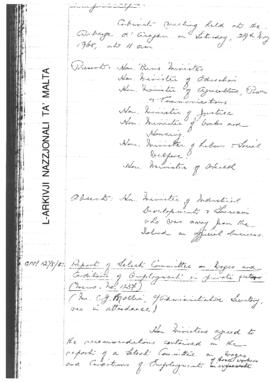 Cabinet Meeting held at the
Auberge d'Aragon on Saturday, 29th May
1965, at 11 a.m.
Present: Hon. Prime Minister
Hon. Minister of Education
Hon. Minister of Agriculture, Power
& Communications
Hon. Minister of Justice
Hon. Minister of Works and
Housing
Hon. Minister of Labour & Social
Welfare
Hon. Minister of Health
L-ARKIVJI NAZZJONALI TA' MALTA
Absent: Hon. Minister of Industrial
Development & Tourism
who was away from the
Island on official business
Report of Select Committee on Wages and
Conditions of Employment in private
(Memo. No.
(Mr. Administrative Secretary,
was in attendance)
Hon. Ministers agreed to
the recommendations contained in the
report of a Select Committee on Wages
and Conditions of Employment